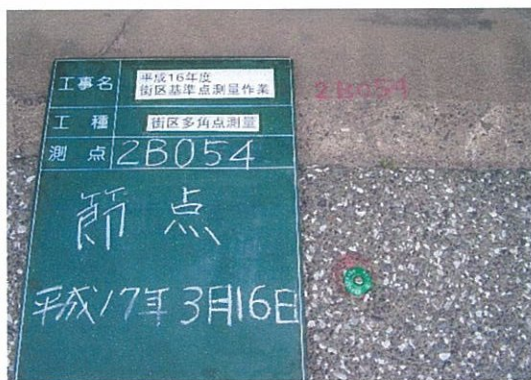 工事名
平成16年度
街区基準点測量作業
工種
街区多角点測量
測点
2B054
節点
平成17年3月16日
2B054